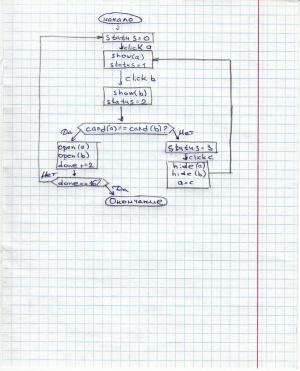 начало
status=0
click a
show(a)
status=1
click b
show(b)
status=2
card(a)==card(b)?
Да
Нет
open(a)
open(b)
done+=2
status=3
click c
hide(a)
hide(b)
a=c
Нет
Да
Окончание